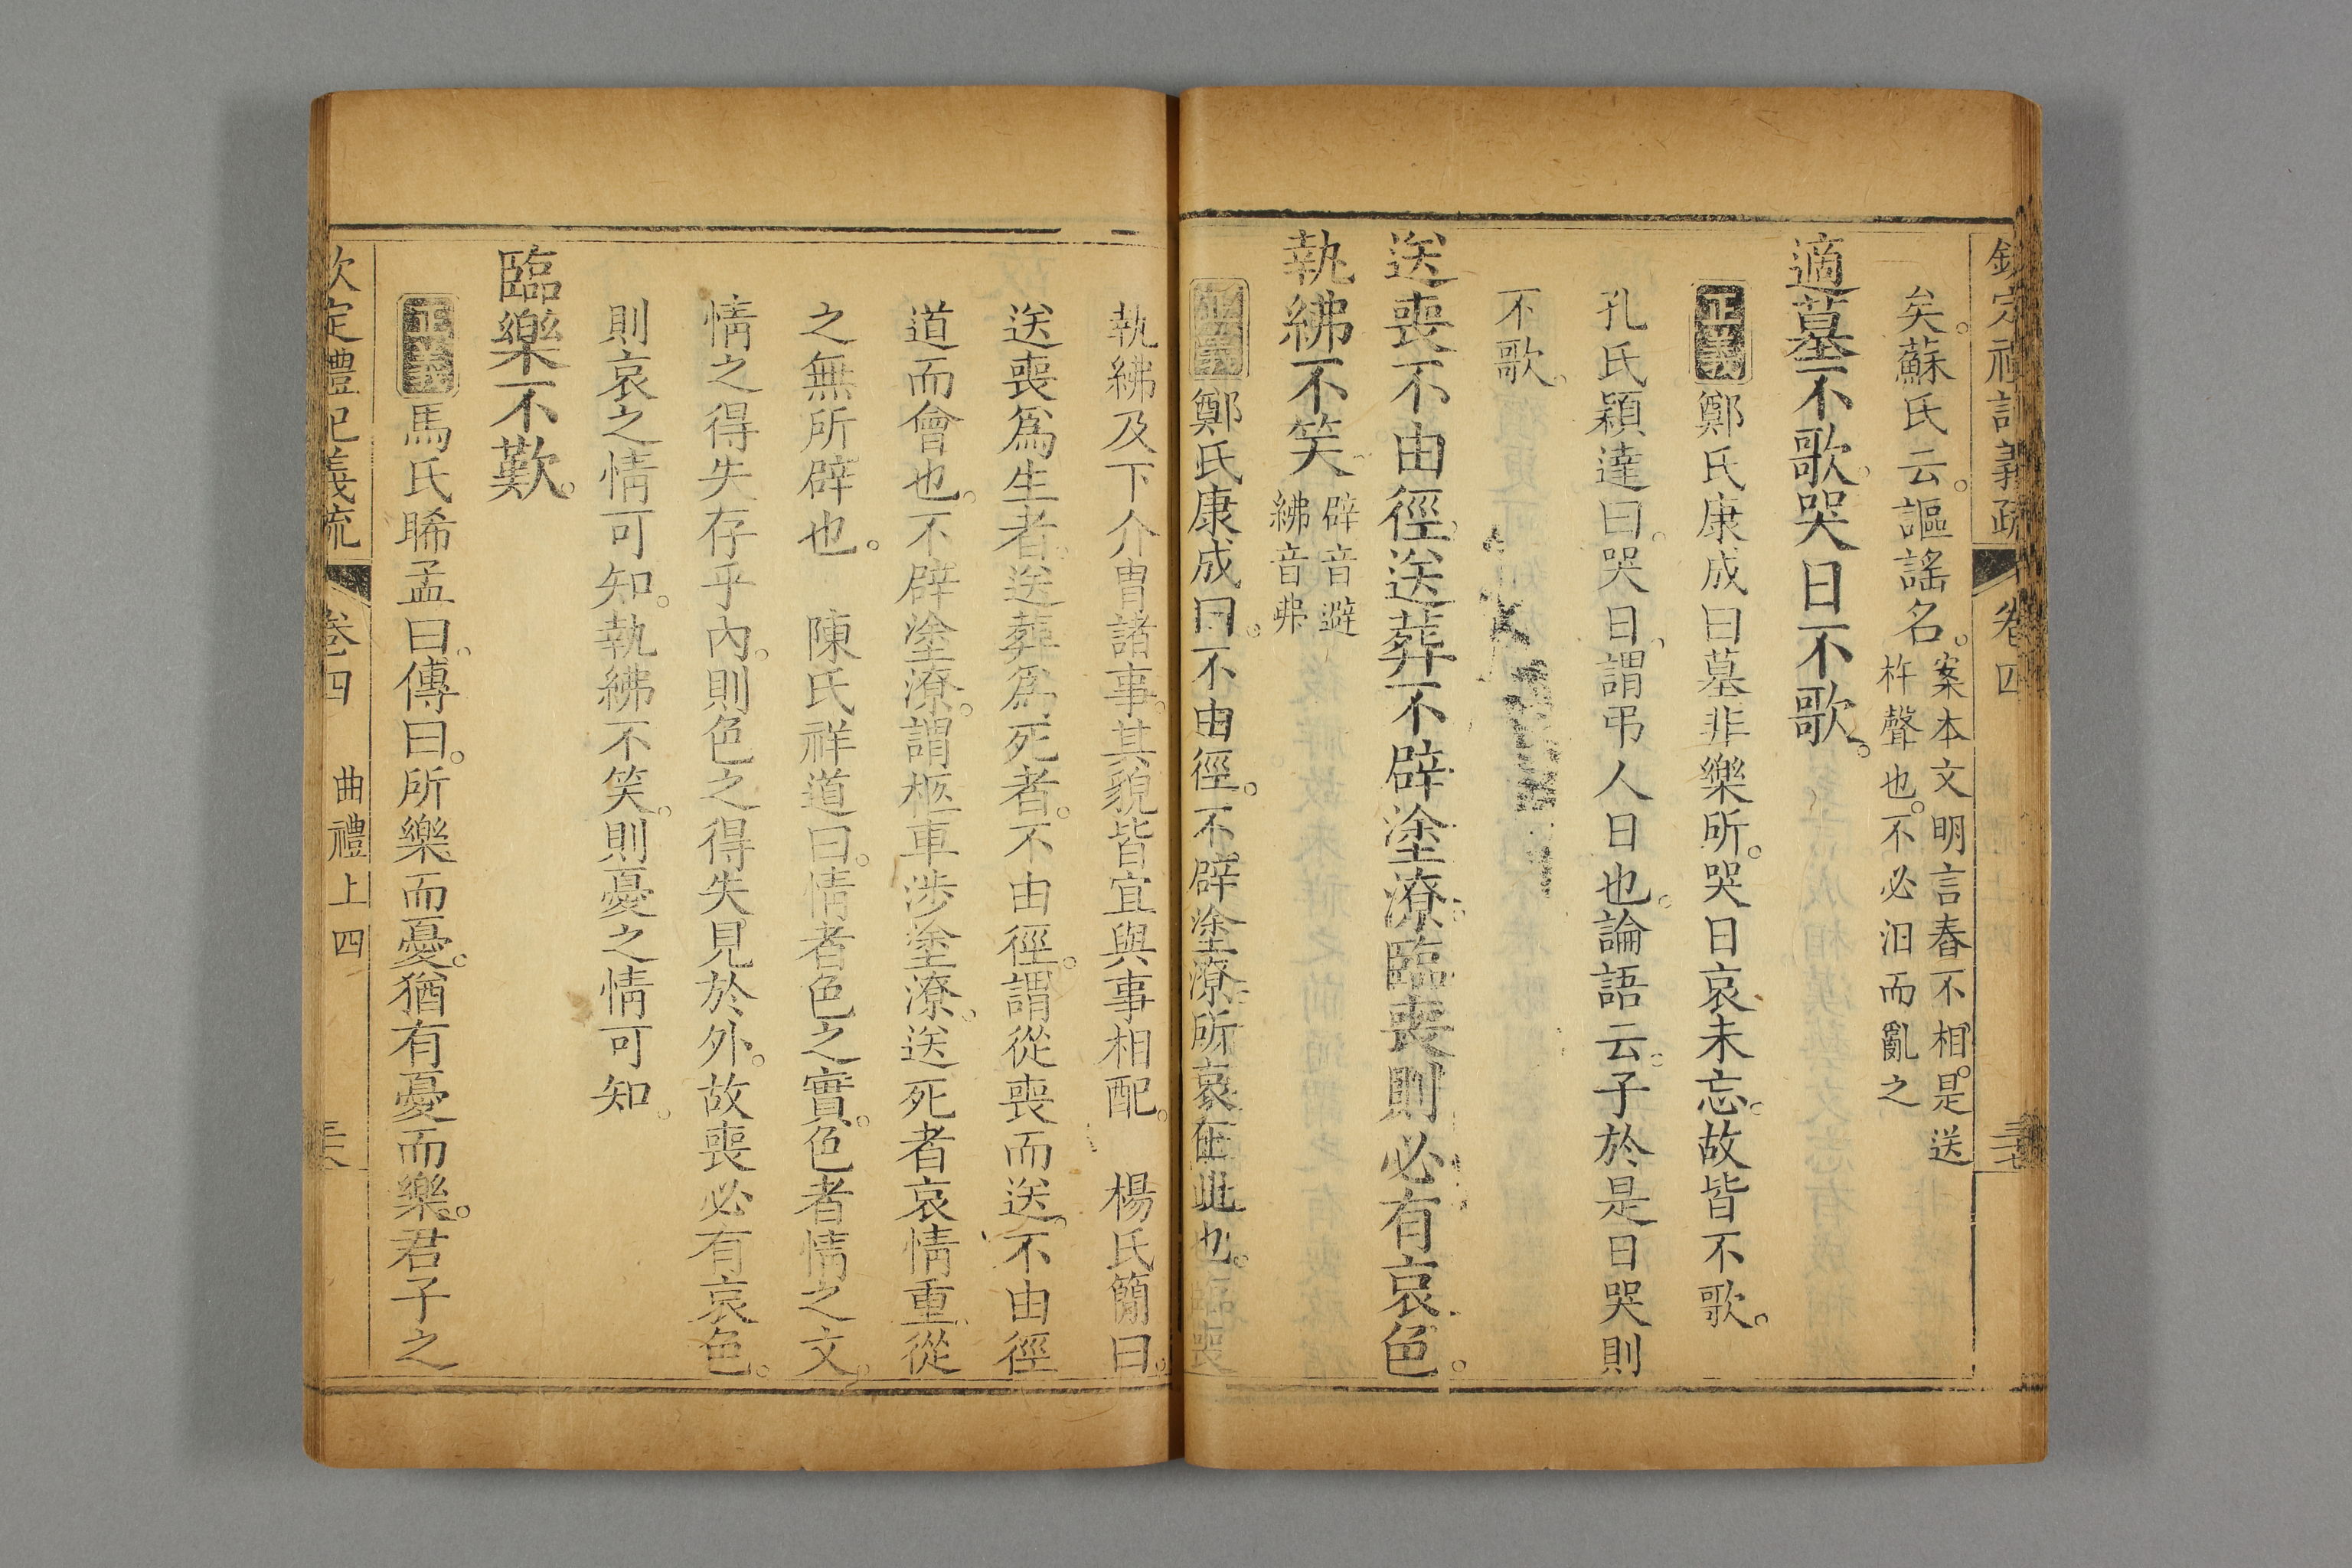 欽定禮記義疏 卷四
矣蘇氏云謳謠名案本文明言舂不相是送杵聲也不必汨而亂之
適墓不歌哭日不歌
正義鄭氏康成曰墓非樂所哭日哀未忘故皆不歌
孔氏穎達曰哭日謂弔人日也論語云子於是日哭則
不歌
送喪不由徑送葬不辟塗潦臨喪則必有哀色
執紼不笑辟音避紼音弗
正義鄭氏康成曰不由徑不辟塗潦所哀在此也臨喪
執紼及下介胄諸事其貌皆宜與事相配 楊氏簡曰
送喪爲生者送葬爲死者不由徑謂從喪而送不由徑
道而會也不辟塗潦謂柩車涉塗潦送死者哀情重從
之無所辟也 陳氏祥道曰情者色之實色者情之文
情之得失存乎內則色之得失見於外故喪必有哀色
則哀之情可知執紼不笑則憂之情可知
臨樂不歎
正義馬氏晞孟曰傳曰所樂而憂猶有憂而樂君子之
欽定禮記義疏 卷四 曲禮上四